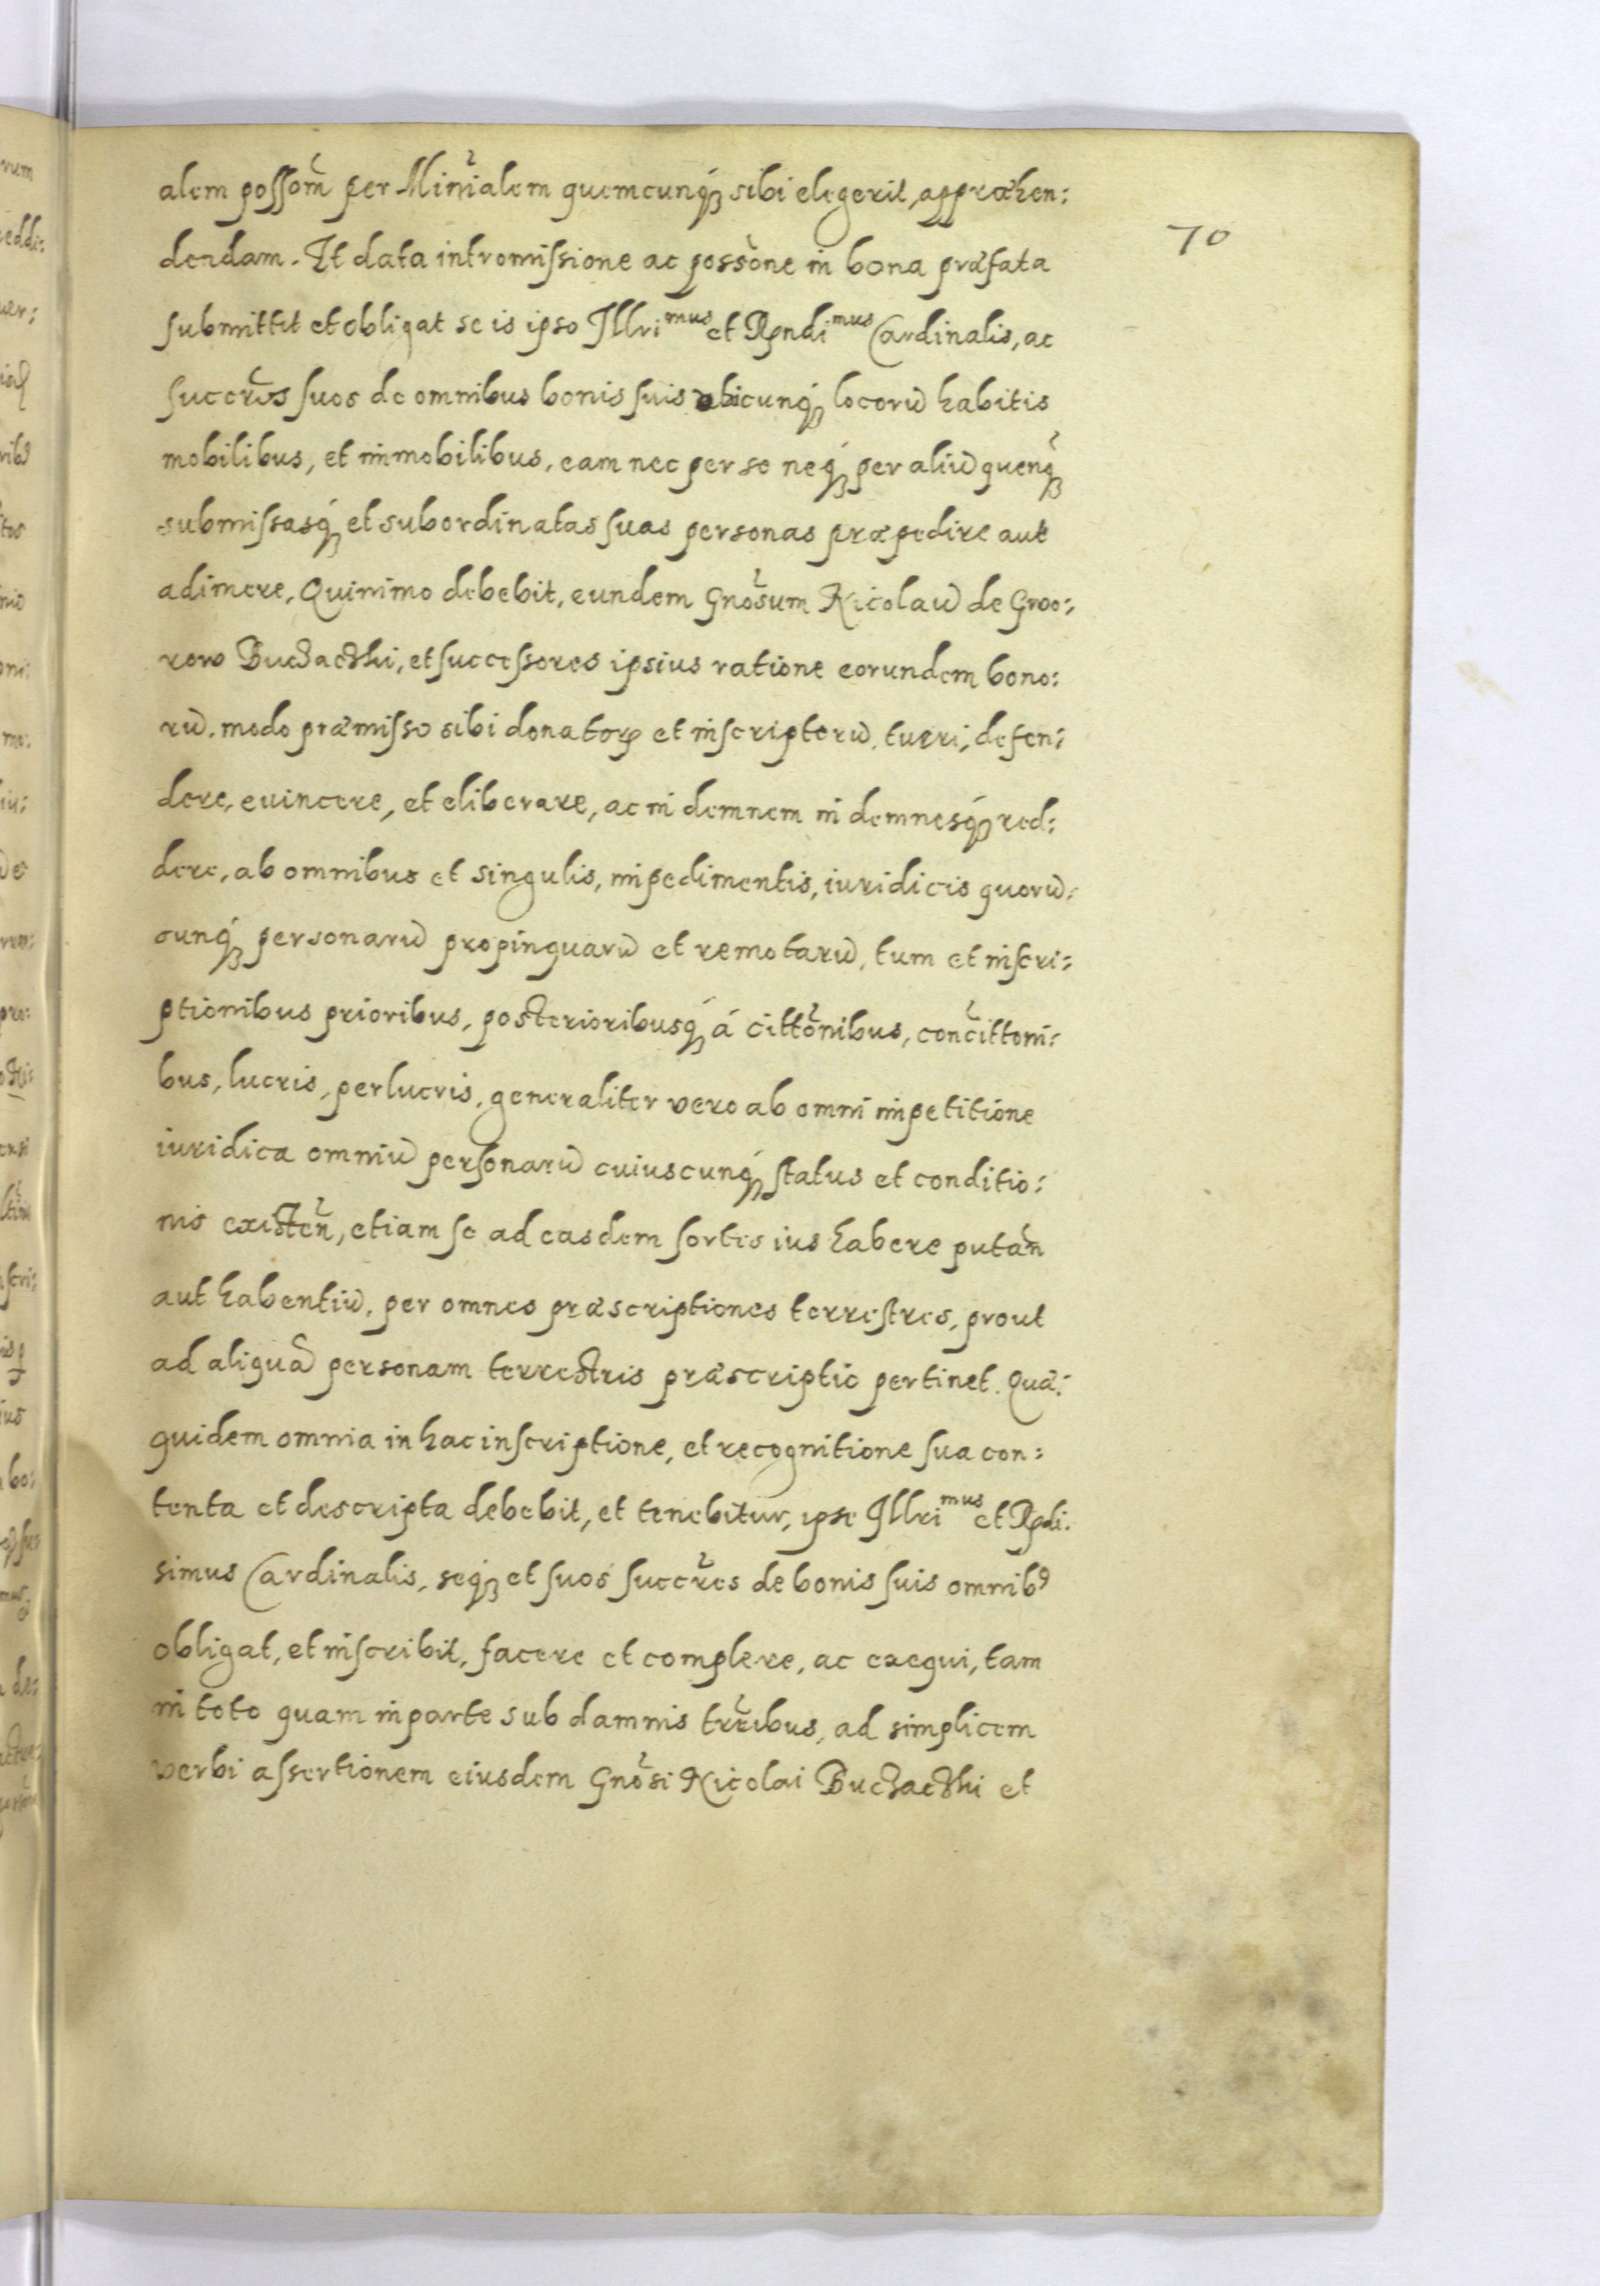 alem possom̃ per Minĩalem quemcunq́ꝫ sibi elegerit, appræhen:
70
dendam. Et data intromissione ac possõne in bona præfata
submittit et obligat se is ipse Illri^mus et Rṇdi^mus Cardinalis, ac
succer̃es suos de omnibus bonis suis ubicunq́ꝫ locorũ habitis
mobilibus, et immobilibus, eam nec per se neq́ꝫ per aliũ quenq̃ꝫ
submissasq́ꝫ et subordinatas suas personas præpedire aut
adimere, Quinimo debebit, eundem Gnõsum Nicolaũ de Groo:,
row Buczaczki, et successores ipsius ratione eorundem bono:
rũ, modo præmisso sibi donatorꝝ et inscriptorũ, tueri, defen:
dere, euincere, et eliberare, ac indemnem indemnesq́ꝫ red:
dere, ab omnibus et singulis, impedimentis, iuridicis quorũ:
cunq́ꝫ personarũ propinquarũ et remotarũ, tum et inscri:
ptionibus prioribus, posterioribusq́ꝫ á cittõnibus, conc̃ittoni:
bus, lucris, perlucris, generaliter vero ab omni impetitione
iuridica omniũ personarũ cuiuscunq́ꝫ status et conditio:
nis existeñ, etiam se ad easdem sortes ius habere putañ
aut habentiũ, per omnes præscriptiones terrestres, prout
ad aliquã personam terrestris præscriptio pertinet. Quæ:
quidem omnia in hac inscriptione, et recognitione sua con:
tenta et descripta debebit, et tenebitur, ipse Illri^mus et Rṇdi:
simus Cardinalis, seq́ꝫ et suos succer̃es de bonis suis omnibꝰ
obligat, et inscribit, facere et complere, ac exequi, tam
in toto quam in parte sub damnis trr̃ibus, ad simplicem
verbi assertionem eiusdem Gnõsi Nicolai Buczaczki et